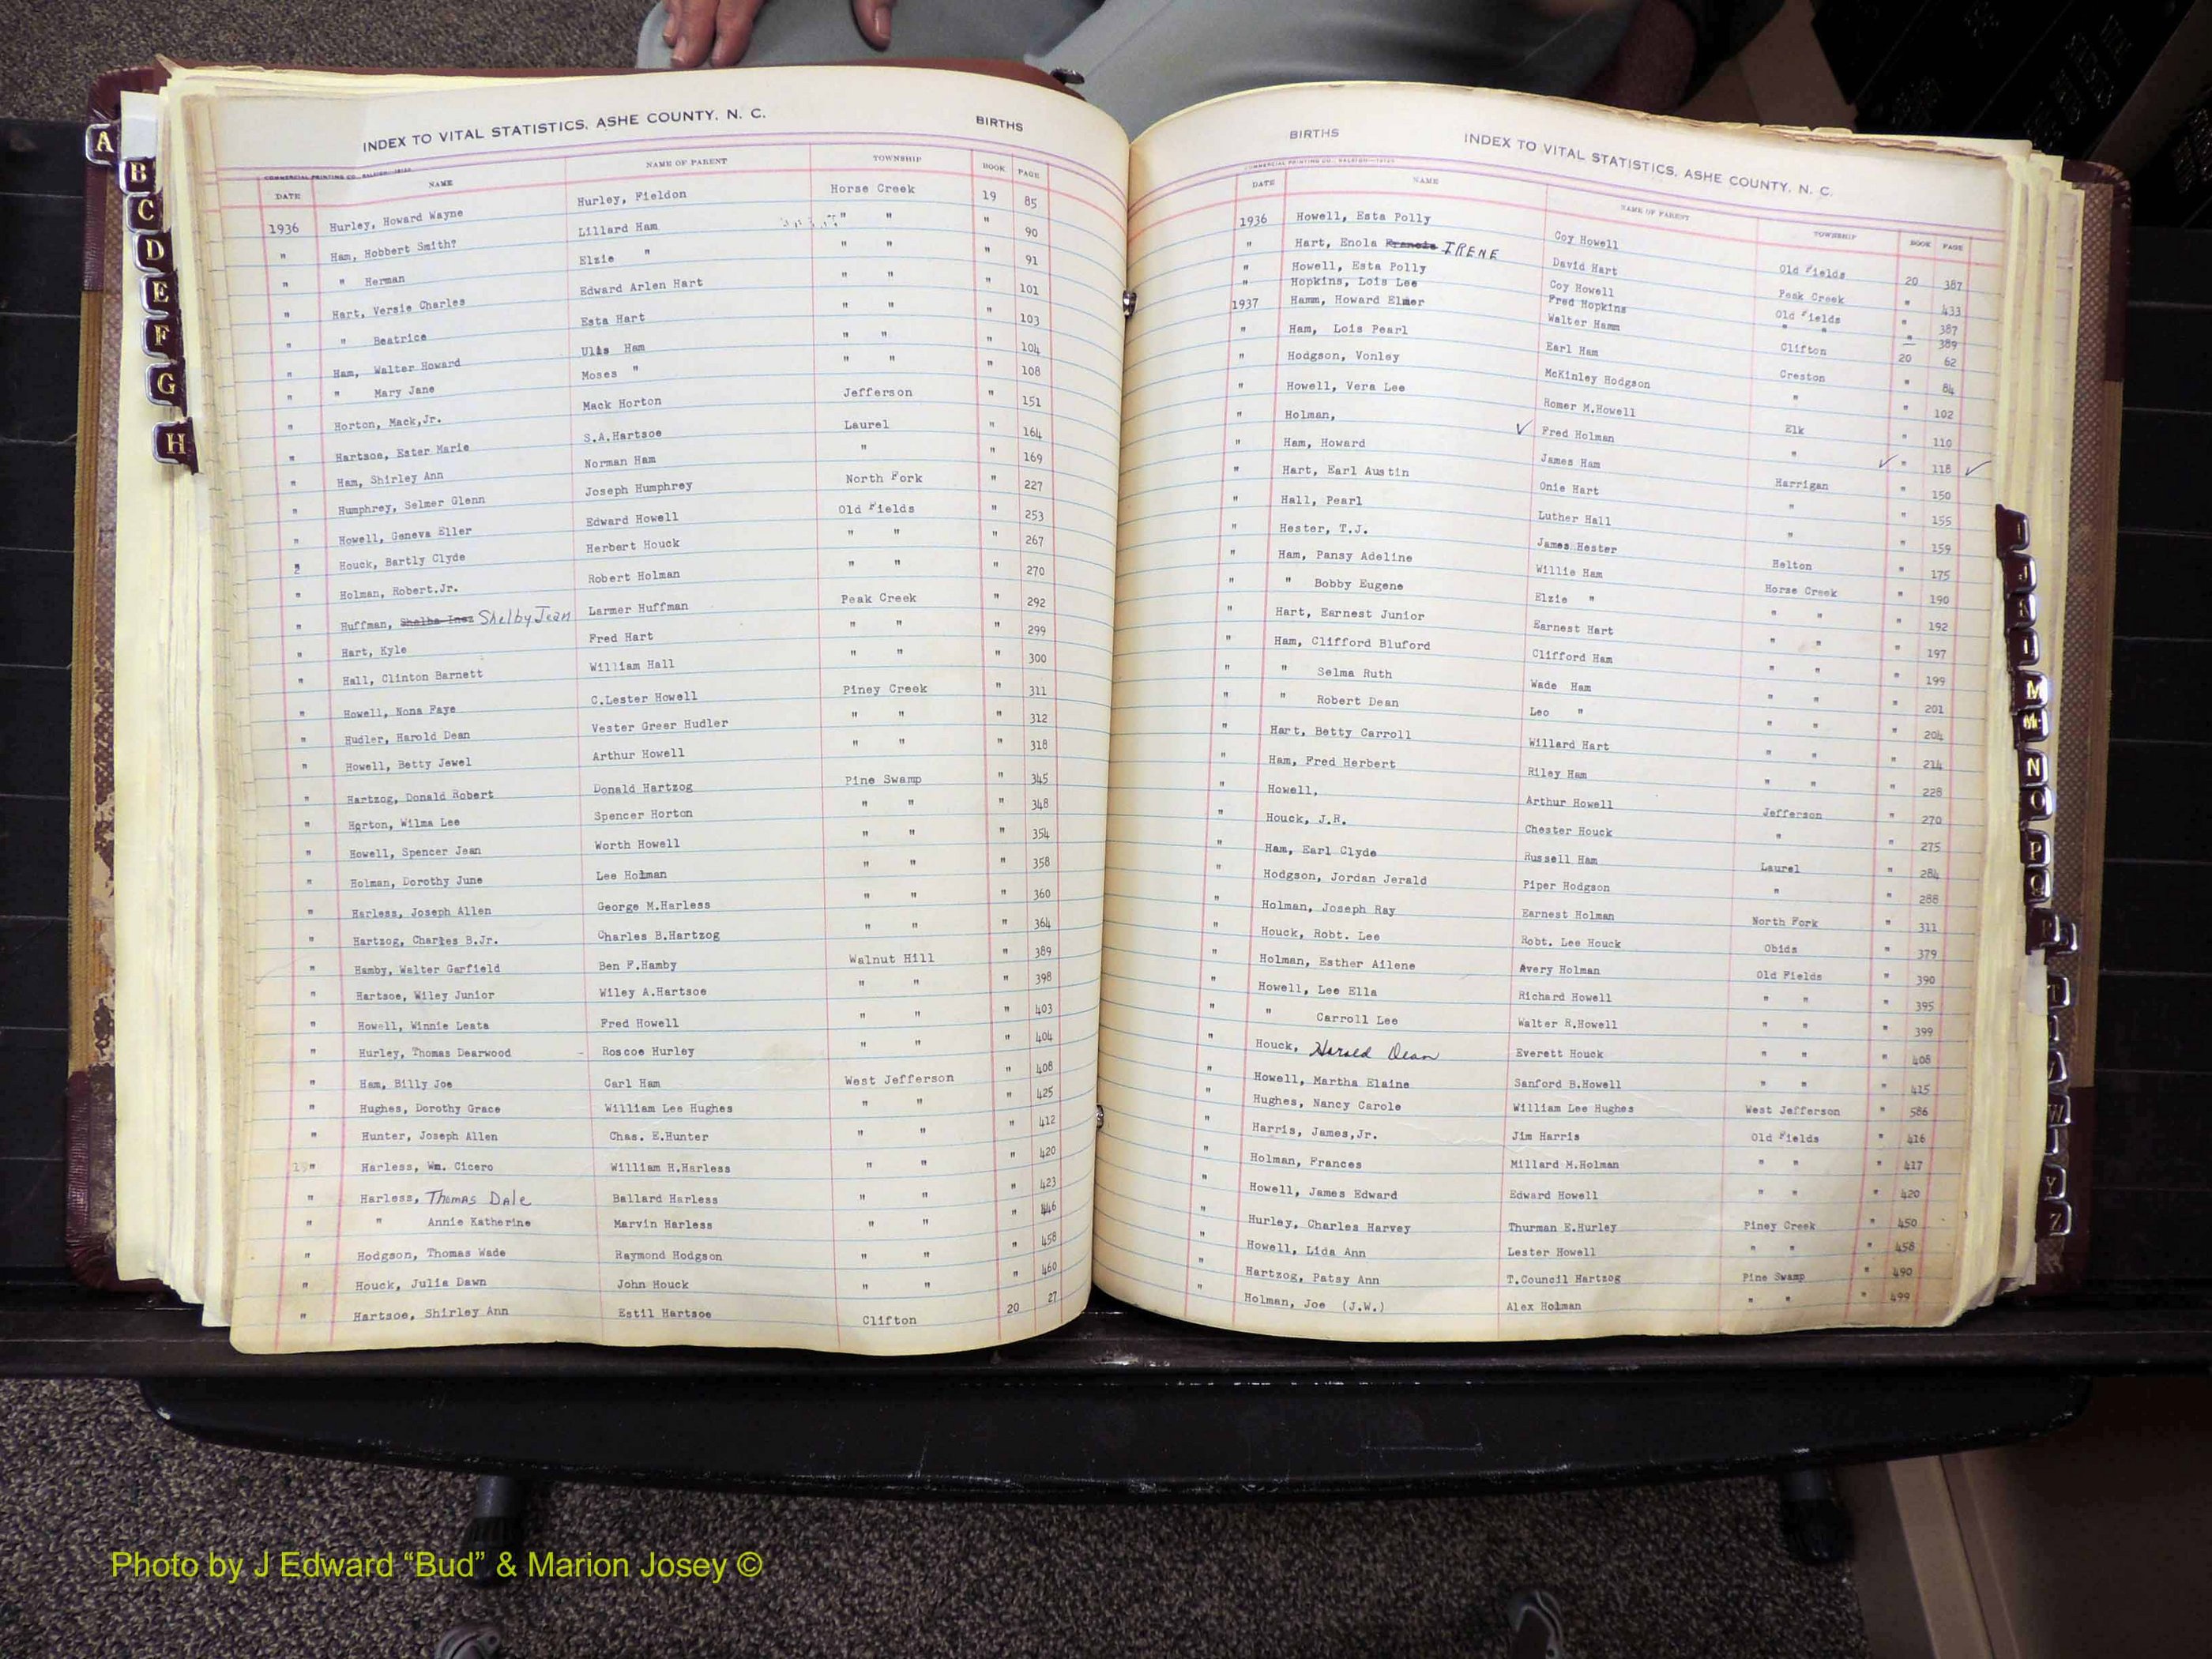 INDEX TO VITAL STATISTICS, ASHE COUNTY, N. C. BIRTHS
COMMERCIAL PRINTING CO., RALEIGH
DATE NAME NAME OF PARENT TOWNSHIP BOOK PAGE
1936 Hurley, Howard Wayne Hurley, Fieldon Horse Creek 19 85
" Ham, Hobbert Smith? Lillard Ham " " " 90
" " Herman Elzie " " " " 91
" Hart, Versie Charles Edward Arlen Hart " " " 101
" " Beatrice Esta Hart " " " 103
" Ham, Walter Howard Ulis Ham " " " 104
" " Mary Jane Moses " " " " 108
" Horton, Mack,Jr. Mack Horton Jefferson " 151
" Hartsoe, Ester Marie S.A.Hartsoe Laurel " 164
" Ham, Shirley Ann Norman Ham " " 169
" Humphrey, Selmer Glenn Joseph Humphrey North Fork " 227
" Howell, Geneva Eller Edward Howell Old Fields " 253
" Houck, Bartly Clyde Herbert Houck " " " 267
" Holman, Robert.Jr. Robert Holman " " " 270
" Huffman, Shelba Inez Shelby Jean Larmer Huffman Peak Creek " 292
" Hart, Kyle Fred Hart " " " 299
" Hall, Clinton Barnett William Hall " " " 300
" Howell, Nona Faye C.Lester Howell Piney Creek " 311
" Hudler, Harold Dean Vester Greer Hudler " " " 312
" Howell, Betty Jewel Arthur Howell " " " 318
" Hartzog, Donald Robert Donald Hartzog Pine Swamp " 345
" Horton, Wilma Lee Spencer Horton " " " 348
" Howell, Spencer Jean Worth Howell " " " 354
" Holman, Dorothy June Lee Holman " " " 358
" Harless, Joseph Allen George M.Harless " " " 360
" Hartzog, Charles B.Jr. Charles B.Hartzog " " " 364
" Hamby, Walter Garfield Ben F.Hamby Walnut Hill " 389
" Hartsoe, Wiley Junior Wiley A.Hartsoe " " " 398
" Howell, Winnie Leata Fred Howell " " " 403
" Hurley, Thomas Dearwood Roscoe Hurley " " " 404
" Ham, Billy Joe Carl Ham West Jefferson " 408
" Hughes, Dorothy Grace William Lee Hughes " " " 425
" Hunter, Joseph Allen Chas. E.Hunter " " " 412
" Harless, Wm. Cicero William H.Harless " " " 420
" Harless, Thomas Dale Ballard Harless " " " 423
" " Annie Katherine Marvin Harless " " " 446
" Hodgson, Thomas Wade Raymond Hodgson " " " 458
" Houck, Julia Dawn John Houck " " " 460
" Hartsoe, Shirley Ann Estil Hartsoe Clifton 20 27
BIRTHS INDEX TO VITAL STATISTICS, ASHE COUNTY, N. C.
COMMERCIAL PRINTING CO., RALEIGH
DATE NAME NAME OF PARENT TOWNSHIP BOOK PAGE
1936 Howell, Esta Polly Coy Howell Old Fields 20 387
" Hart, Enola Francis IRENE David Hart Peak Creek " 433
" Howell, Esta Polly Coy Howell Old Fields " 387
" Hopkins, Lois Lee Fred Hopkins " " " 389
1937 Hamm, Howard Elmer Walter Hamm Clifton 20 62
" Ham, Lois Pearl Earl Ham Creston " 84
" Hodgson, Vonley McKinley Hodgson " " 102
" Howell, Vera Lee Romer M.Howell Elk " 110
" Holman, ✓ Fred Holman " ✓ " 118 ✓
" Ham, Howard James Ham Harrigan " 150
" Hart, Earl Austin Onie Hart " " 155
" Hall, Pearl Luther Hall " " 159
" Hester, T.J. James Hester Helton " 175
" Ham, Pansy Adeline Willie Ham Horse Creek " 190
" " Bobby Eugene Elzie " " " " 192
" Hart, Earnest Junior Earnest Hart " " " 197
" Ham, Clifford Bluford Clifford Ham " " " 199
" " Selma Ruth Wade Ham " " " 201
" " Robert Dean Leo " " " " 204
" Hart, Betty Carroll Willard Hart " " " 214
" Ham, Fred Herbert Riley Ham " " " 228
" Howell, Arthur Howell Jefferson " 270
" Houck, J.R. Chester Houck " " 275
" Ham, Earl Clyde Russell Ham Laurel " 284
" Hodgson, Jordan Jerald Piper Hodgson " " 288
" Holman, Joseph Ray Earnest Holman North Fork " 311
" Houck, Robt. Lee Robt. Lee Houck Obids " 379
" Holman, Esther Ailene Avery Holman Old Fields " 390
" Howell, Lee Ella Richard Howell " " " 395
" " Carroll Lee Walter R.Howell " " " 399
" Houck, Harold Dean Everett Houck " " " 408
" Howell, Martha Elaine Sanford B.Howell " " " 415
" Hughes, Nancy Carole William Lee Hughes West Jefferson " 586
" Harris, James,Jr. Jim Harris Old Fields " 416
" Holman, Frances Millard M.Holman " " " 417
" Howell, James Edward Edward Howell " " " 420
" Hurley, Charles Harvey Thurman E.Hurley Piney Creek " 450
" Howell, Lida Ann Lester Howell " " " 458
" Hartzog, Patsy Ann T.Council Hartzog Pine Swamp " 490
" Holman, Joe (J.W.) Alex Holman " " " 499
A
B
C
D
E
F
G
H
J
K
M
Mc
N
O
P
Q
T
W
Y
Z
Photo by J Edward “Bud” & Marion Josey ©